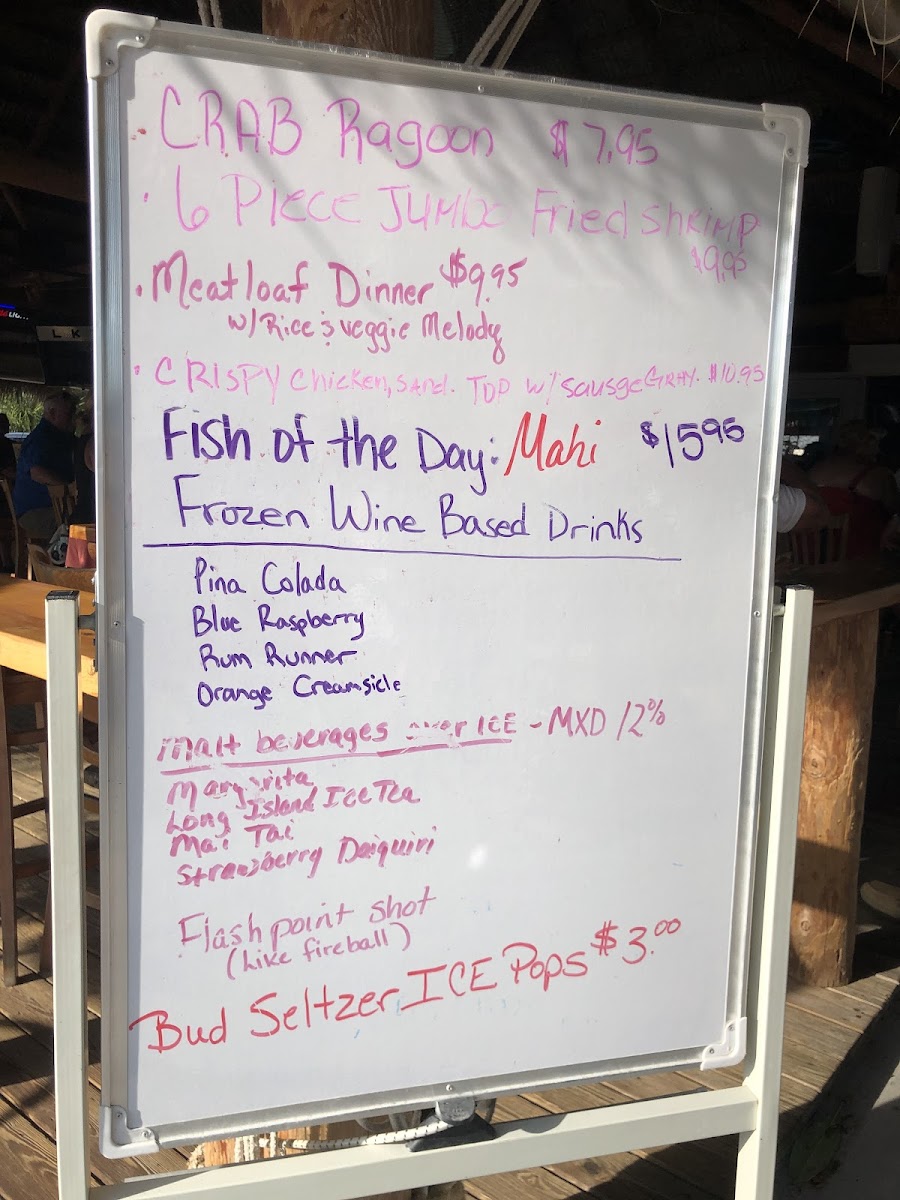 • CRAB Ragoon $7.95
• 6 Piece Jumbo Fried Shrimp
$9.95
• Meatloaf Dinner $9.95
w/Rice & veggie Melody
• CRISPY chicken, sand. TOP w/ sausge GRAY. $10.95
Fish of the Day: Mahi $1595
Frozen Wine Based Drinks
Pina Colada
Blue Raspberry
Rum Runner
Orange Creamsicle
Malt beverages over ICE - MXD 12%
Margarita
Long Island Ice Tea
Mai Tai
Strawberry Daiquiri
Flash point shot
(Like fireball)
Bud Seltzer ICE Pops $3.00